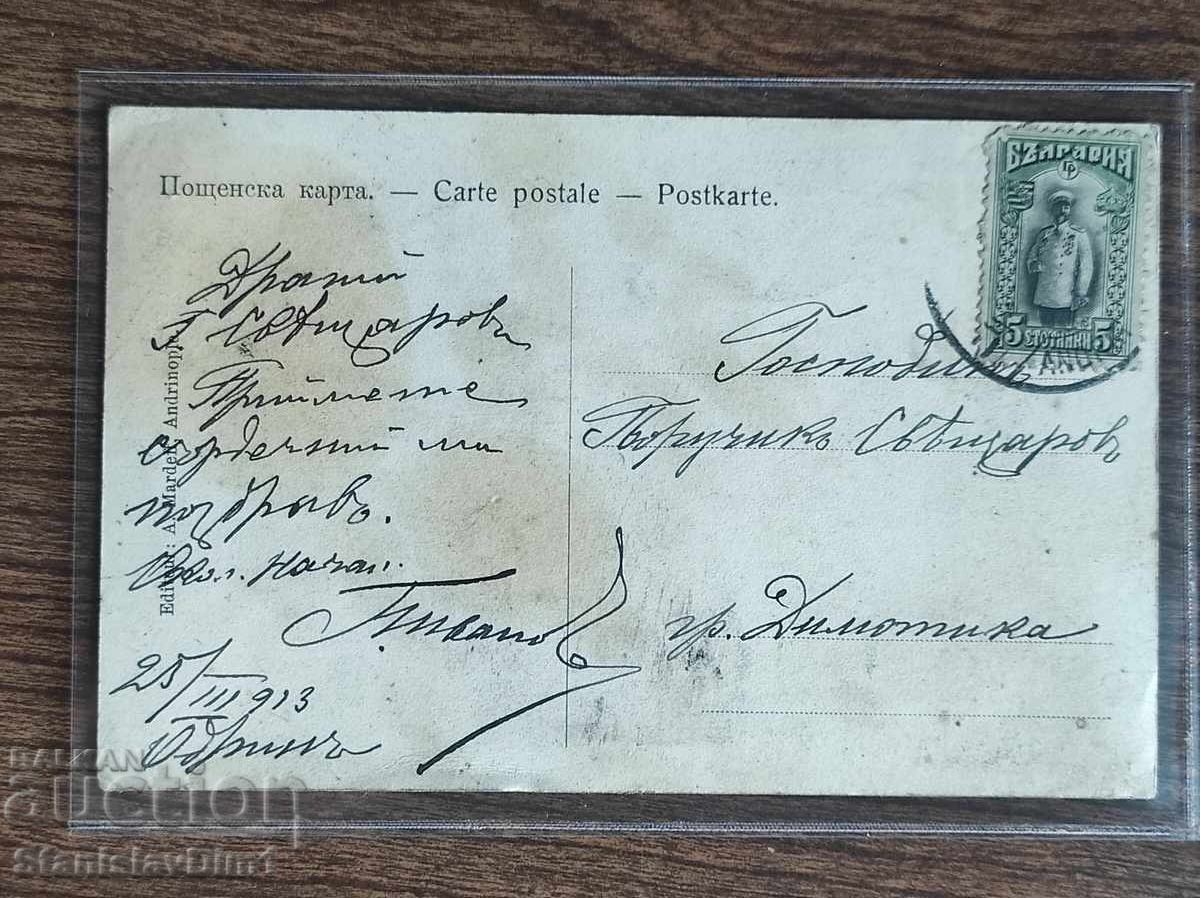 Пощенска карта. — Carte postale — Postkarte.
БЪЛГАРИЯ
5 СТОТИНКИ 5
Драгий
Г. Свѣщаровъ
Приймете
сърдечний ми
поздравъ.
Окол. Начал.
25/III 913
Одринъ
Господинъ
Поручикъ Свѣщаровъ
гр. Димотика
BALKAN
auction
StanislavDim1